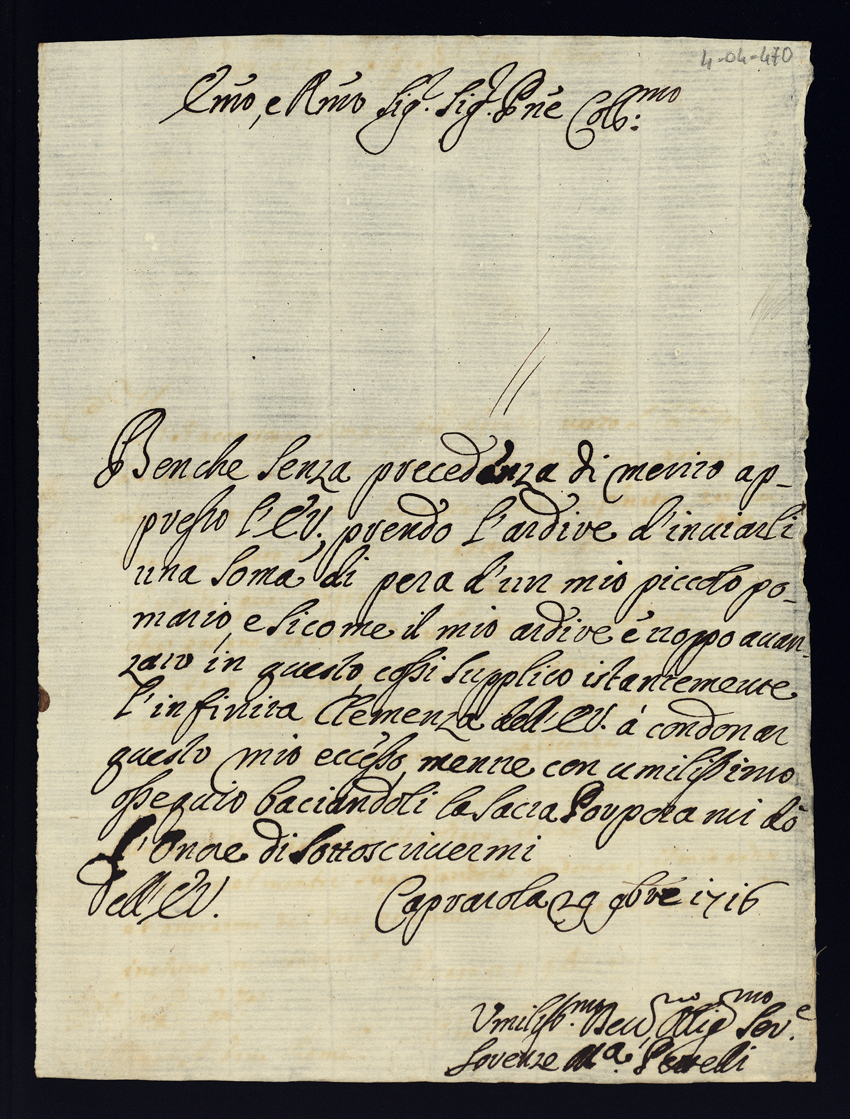 4-04-470
Emo, e Rmo Sig.r Sig.r Prne Colo:mo
Benche senza precedenza di merito ap-
presso l'EV, prendo l'ardire d'inviarli
una soma di pera d'un mio piccolo po-
mario, e sicome il mio ardire è troppo avan-
zato in questo, cossi supplico istantemente
l'infinita Clemenza dell'EV. á condonar
questo mio eccesso, mentre con umilissimo
ossequio baciandoli la Sacra Porpora mi dò
l'Onore di sottoscrivermi
Dell'EV. Caprarola 29 9bre 1716
Vmiliss.mo Oblig.mo Ser.e
Lorenzo Ma.